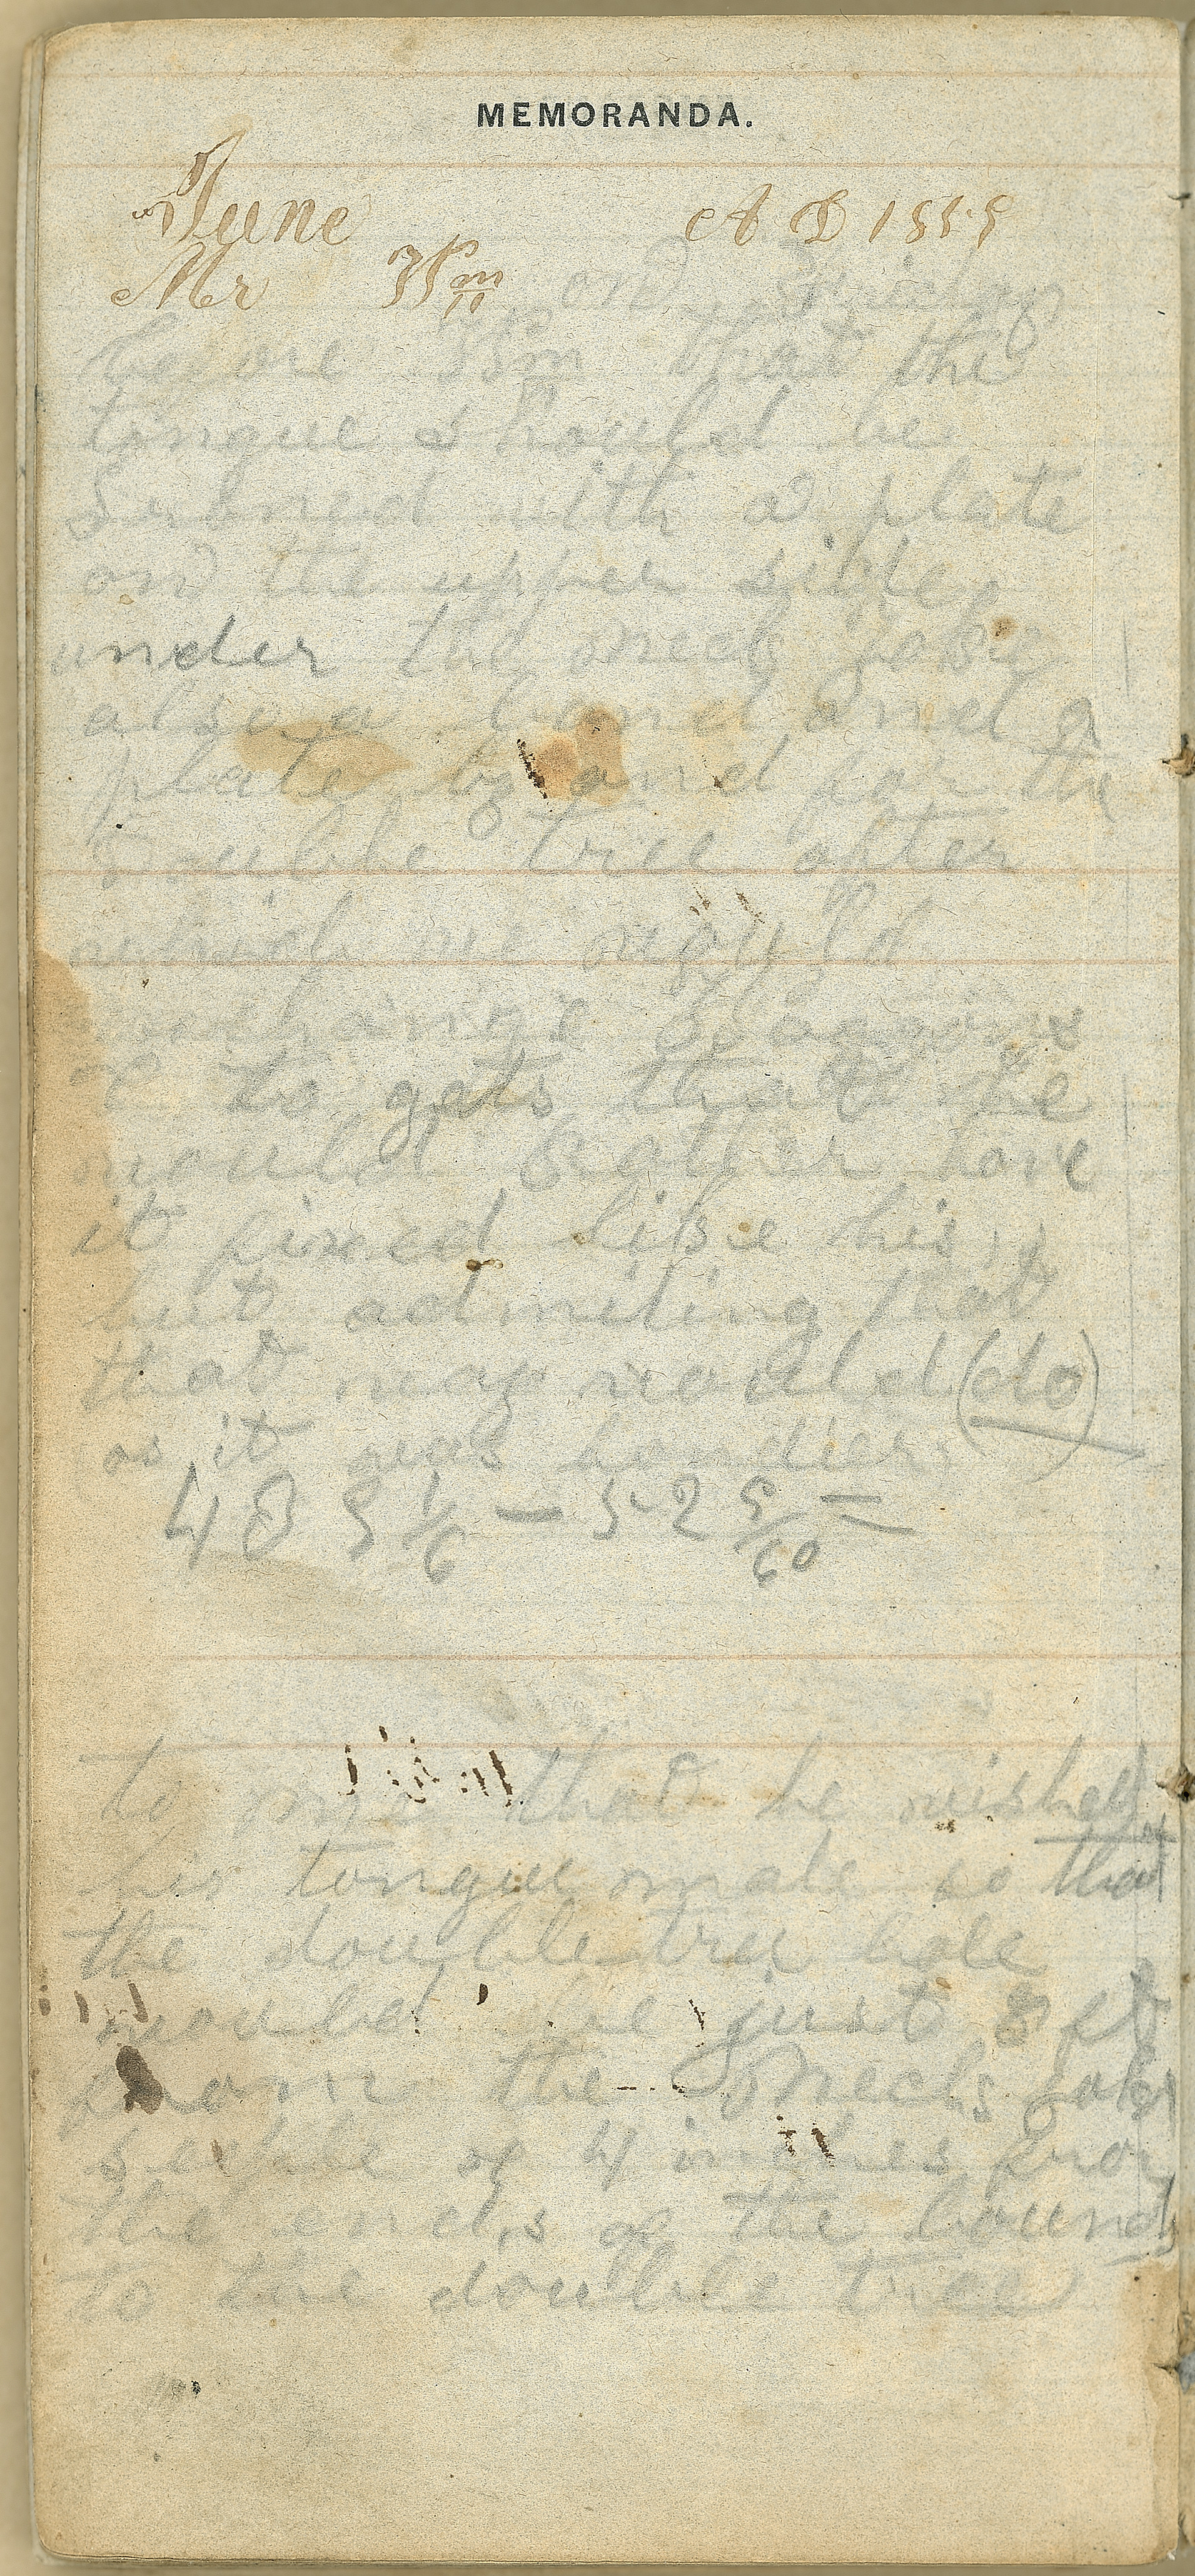 MEMORANDA.
June A D 1885
Mr
on Friday
before that the
tongue should be
with a plate
on the upper side
under the neck yoke
also a band and a
plate band for the
Double tree after
which we
wagons
to gets that he
would rather have
it fixed like his
but admiting that
that way would (do)
as it was handier
48 5 1/6 — 52 5/60 =
to me that he wished
his tongue made so that
the double tree hole
would be just 8 ft
from the neck yoke
of 4 inches from
the ends of the hound
to the double tree